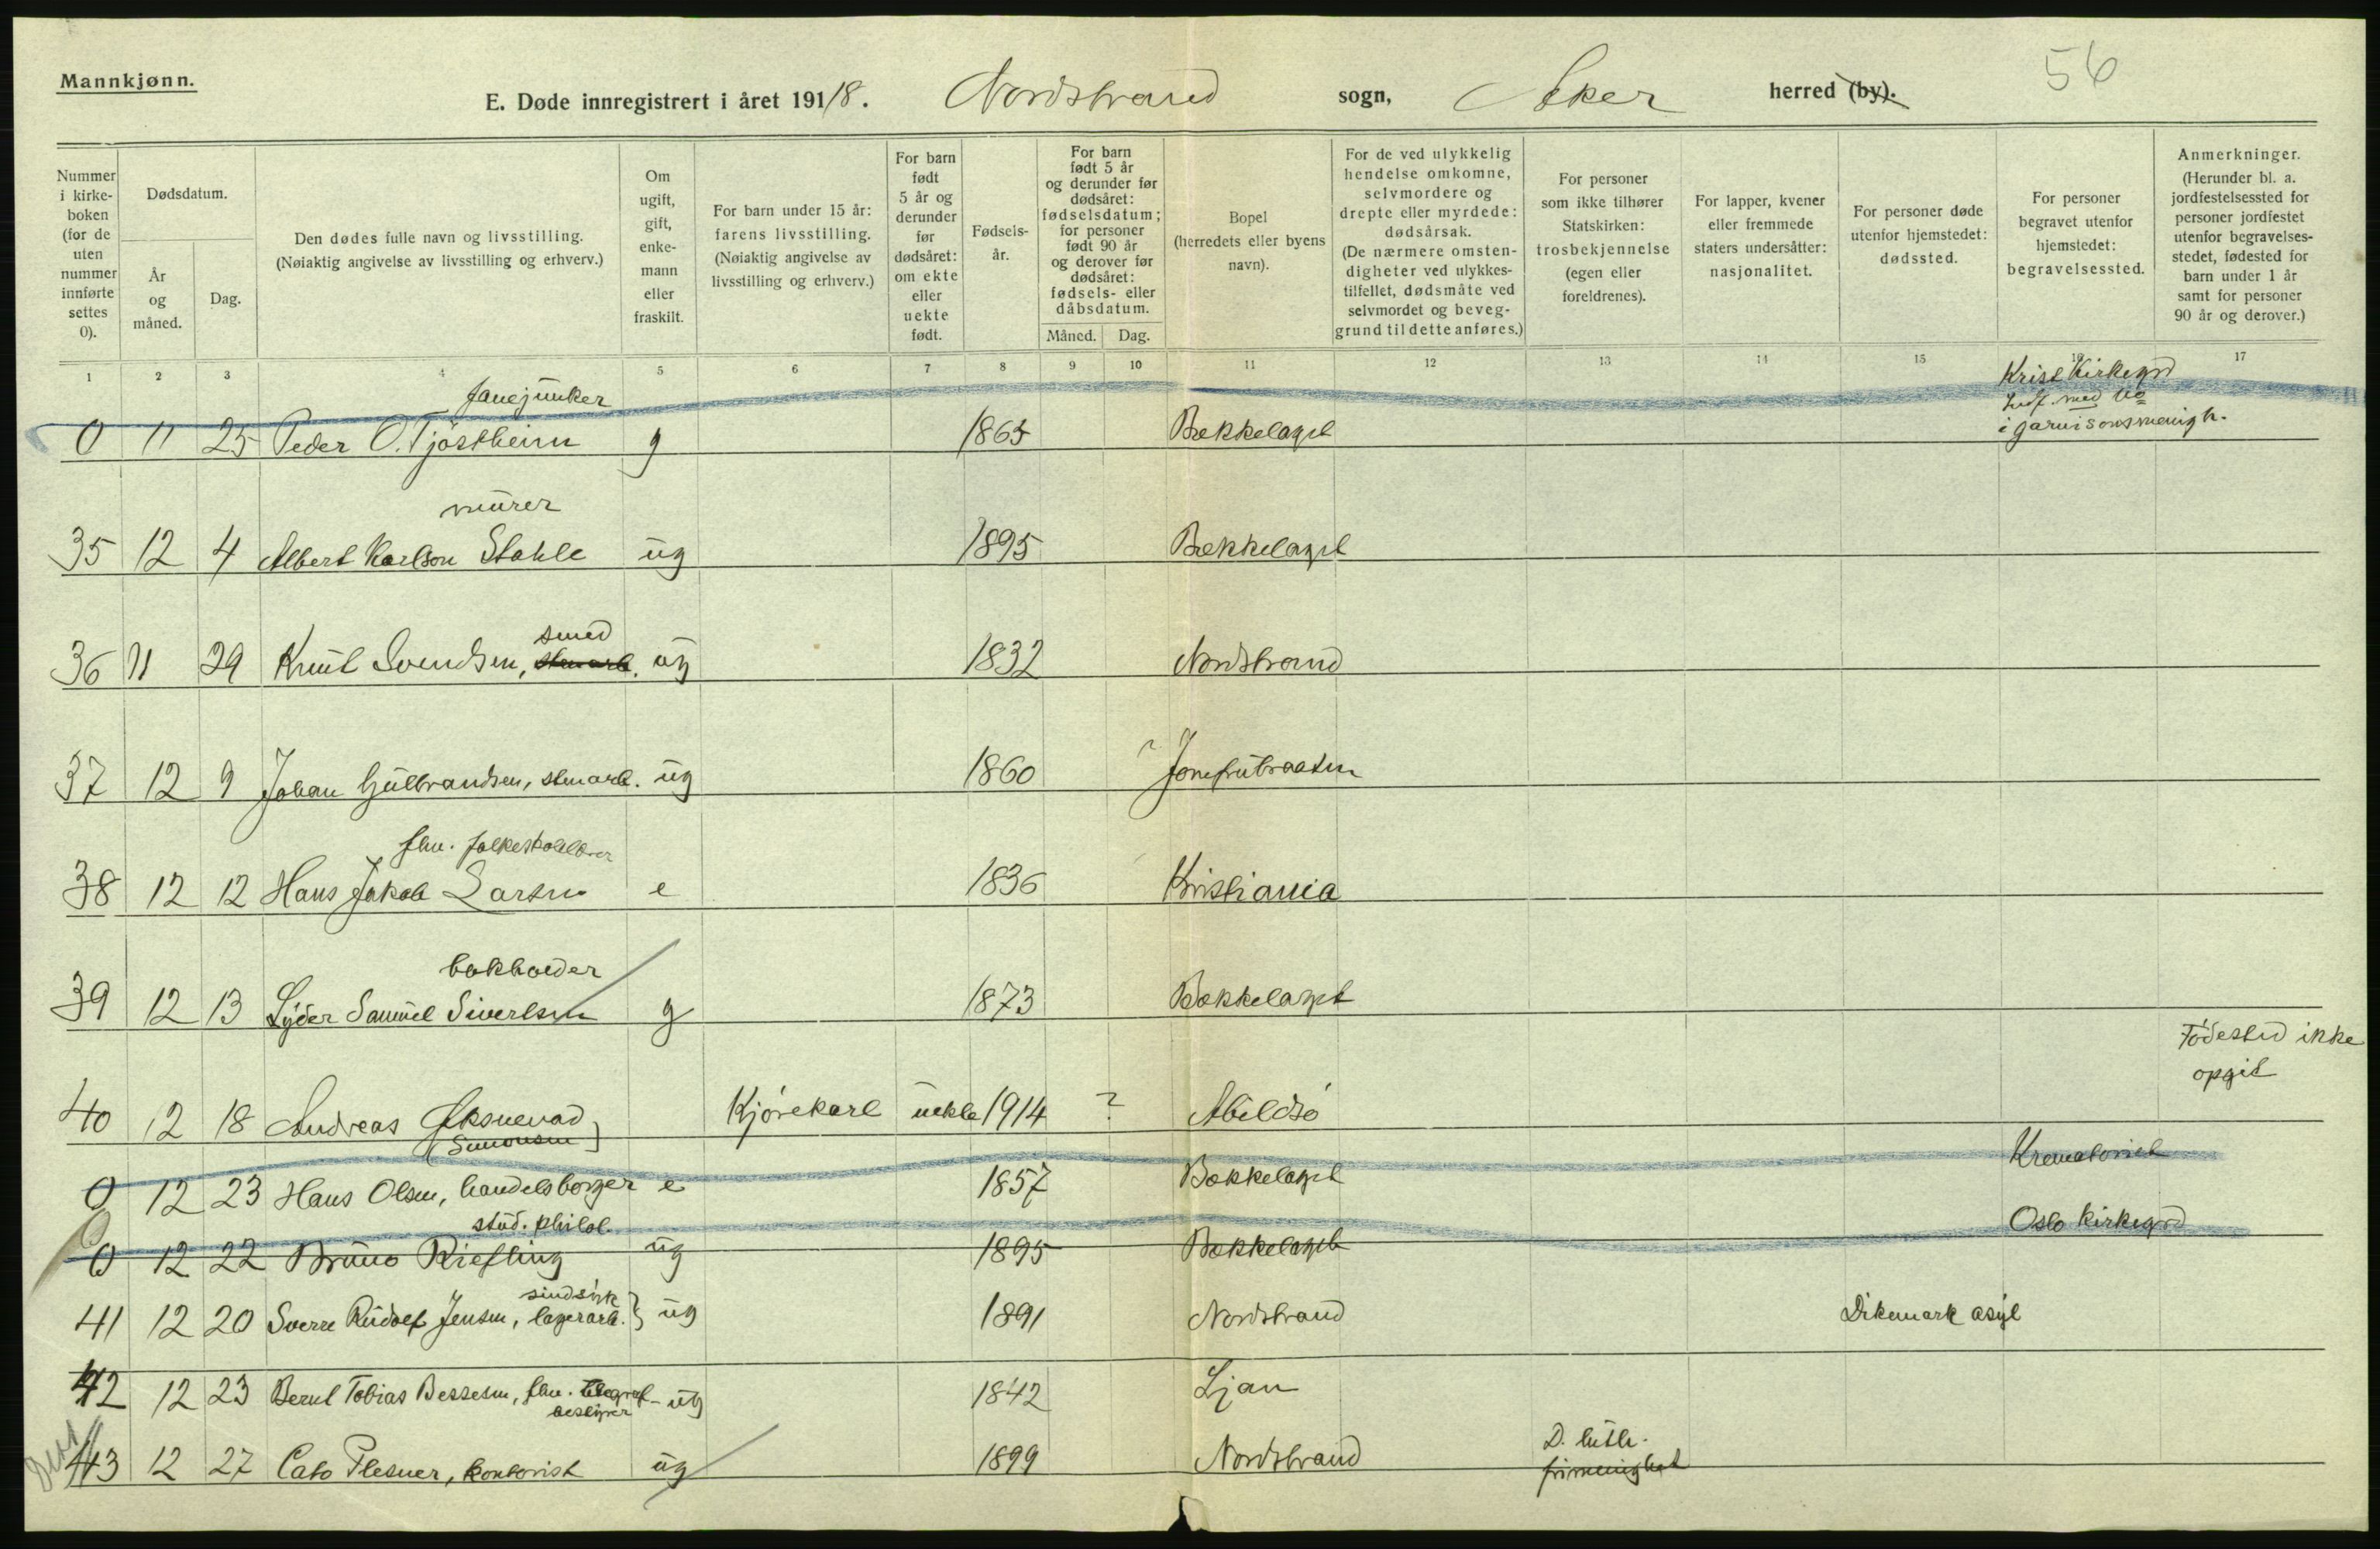 Mannkjønn.
E. Døde innregistrert i året 191/18. Nordstrand sogn, Aker herred (by).
56
Nummer i kirke-boken (for de uten nummer innførte settes 0).
Dødsdatum.
År og måned.
Dag.
Den dødes fulle navn og livsstilling. (Nøiaktig angivelse av livsstilling og erhverv.)
Om ugift, gift, enke-mann eller fraskilt.
For barn under 15 år: farens livsstilling. (Nøiaktig angivelse av livsstilling og erhverv.)
For barn født 5 år og derunder før dødsåret: om ekte eller uekte født.
Fødsels-år.
For barn født 5 år og derunder før dødsåret: fødselsdatum; for personer født 90 år og derover før dødsåret: fødsels- eller dåbsdatum.
Måned.
Dag.
Bopel (herredets eller byens navn).
For de ved ulykkelig hendelse omkomne, selvmordere og drepte eller myrdede: dødsårsak. (De nærmere omsten-digheter ved ulykkes-tilfellet, dødsmåte ved selvmordet og beveg-grund til dette anføres.)
For personer som ikke tilhører Statskirken: trosbekjennelse (egen eller foreldrenes).
For lapper, kvener eller fremmede staters undersåtter: nasjonalitet.
For personer døde utenfor hjemstedet: dødssted.
For personer begravet utenfor hjemstedet: begravelsessted.
Anmerkninger. (Herunder bl. a. jordfestelsessted for personer jordfestet utenfor begravelses-stedet, fødested for barn under 1 år samt for personer 90 år og derover.)
1 2 3 4 5 6 7 8 9 10 11 12 13 14 15 16 17
fanejunker
Krist Kirkegrd
indf med No
i garnisonsmenigh.
0 11 25 Peder O. Tjöstheim g 1865 Bækkelaget
murer
35 12 4 Albert Karlson Stahle ug 1895 Bækkelaget
smed
36 11 29 Knut Svendsen, stenarb. ug 1832 Nordstrand
37 12 9 Johan Gulbrandsen, stenarb. ug 1860 ? Jomfrubraaten
fhv. folkeskolelærer
38 12 12 Hans Jakob Larsen e 1836 Kristiania
bokholder
39 12 13 Lyder Samuel Sivertsen g 1873 Bækkelaget
Födested ikke
opgit
40 12 18 Andreas Oksnevad Kjörekarl uekte 1914 ? Abildsö
(Simonsen)
Krematoriet
0 12 23 Hans Olsen, handelsborger e 1857 Bækkelaget
stud. philol. Oslo Kirkegrd
0 12 22 Bruno Riefling ug 1895 Bækkelaget
sindsyk
41 12 20 Sverre Rudolf Jensen, lagerarb. } ug 1891 Nordstrand Dikemark asyl
42 12 23 Bernt Tobias Bessesen, fhv. telegraf- ug 1842 Ljan
bestyrer
43 12 27 Cato Plesner, kontorist ug 1899 Nordstrand D. luth.
frimenighet